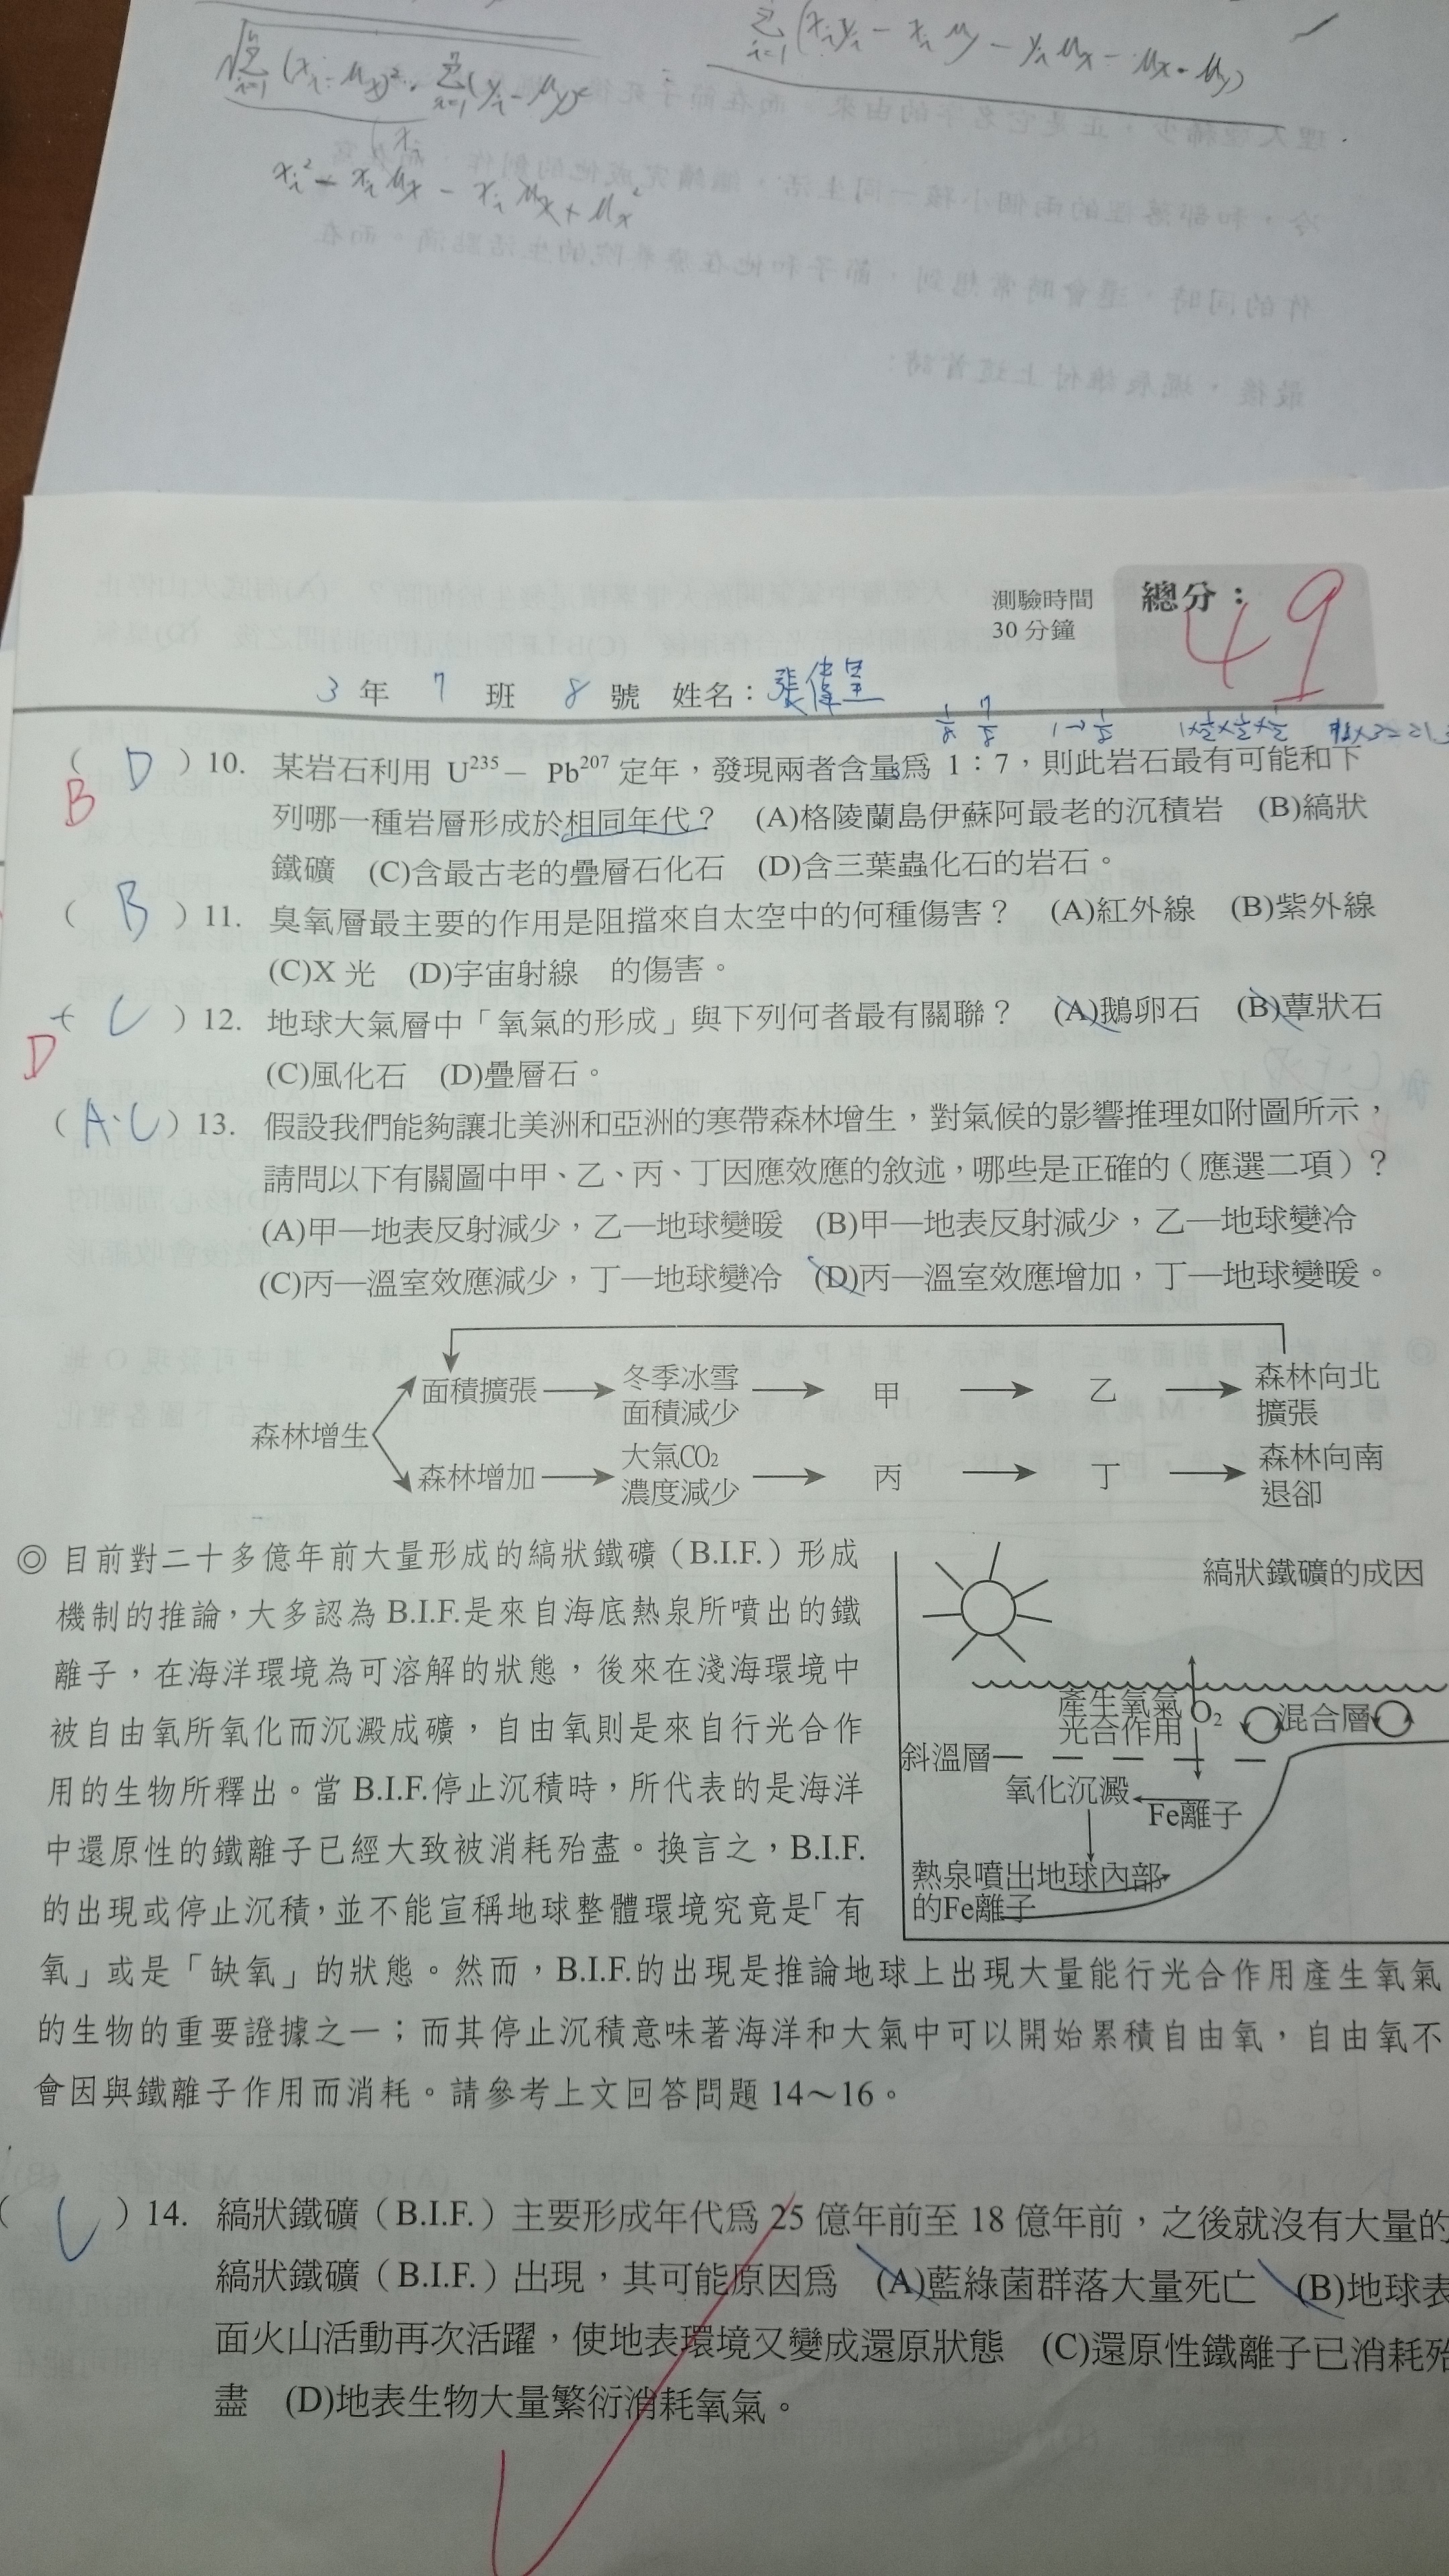 x_i² - x_i μ_x - x_i μ_x + μ_x²
測驗時間
30 分鐘
總分：49
3 年 7 班 8 號 姓名：張偉
1/8 7/8 1→1/8 1×1/2×1/2×1/2
( D ) 10. 某岩石利用 U²³⁵－ Pb²⁰⁷ 定年，發現兩者含量為 1：7，則此岩石最有可能和下
B
列哪一種岩層形成於相同年代？ (A)格陵蘭島伊蘇阿最老的沉積岩 (B)縞狀
鐵礦 (C)含最古老的疊層石化石 (D)含三葉蟲化石的岩石。
( B ) 11. 臭氧層最主要的作用是阻擋來自太空中的何種傷害？ (A)紅外線 (B)紫外線
(C)X 光 (D)宇宙射線 的傷害。
C ) 12. 地球大氣層中「氧氣的形成」與下列何者最有關聯？ (A)鵝卵石 (B)蕈狀石
D
(C)風化石 (D)疊層石。
( A.C ) 13. 假設我們能夠讓北美洲和亞洲的寒帶森林增生，對氣候的影響推理如附圖所示，
請問以下有關圖中甲、乙、丙、丁因應效應的敘述，哪些是正確的（應選二項）？
(A)甲—地表反射減少，乙—地球變暖 (B)甲—地表反射減少，乙—地球變冷
(C)丙—溫室效應減少，丁—地球變冷 (D)丙—溫室效應增加，丁—地球變暖。
森林增生
面積擴張 → 冬季冰雪面積減少 → 甲 → 乙 → 森林向北擴張
森林增加 → 大氣CO₂濃度減少 → 丙 → 丁 → 森林向南退卻
◎ 目前對二十多億年前大量形成的縞狀鐵礦（B.I.F.）形成
機制的推論，大多認為 B.I.F.是來自海底熱泉所噴出的鐵
離子，在海洋環境為可溶解的狀態，後來在淺海環境中
被自由氧所氧化而沉澱成礦，自由氧則是來自行光合作
用的生物所釋出。當 B.I.F.停止沉積時，所代表的是海洋
中還原性的鐵離子已經大致被消耗殆盡。換言之，B.I.F.
的出現或停止沉積，並不能宣稱地球整體環境究竟是「有
氧」或是「缺氧」的狀態。然而，B.I.F.的出現是推論地球上出現大量能行光合作用產生氧氣
的生物的重要證據之一；而其停止沉積意味著海洋和大氣中可以開始累積自由氧，自由氧不
會因與鐵離子作用而消耗。請參考上文回答問題 14～16。
縞狀鐵礦的成因
產生氧氣
光合作用
O₂
混合層
斜溫層
氧化沉澱
Fe離子
熱泉噴出地球內部
的Fe離子
( C ) 14. 縞狀鐵礦（B.I.F.）主要形成年代為 25 億年前至 18 億年前，之後就沒有大量的
縞狀鐵礦（B.I.F.）出現，其可能原因為 (A)藍綠菌群落大量死亡 (B)地球表
面火山活動再次活躍，使地表環境又變成還原狀態 (C)還原性鐵離子已消耗殆
盡 (D)地表生物大量繁衍消耗氧氣。